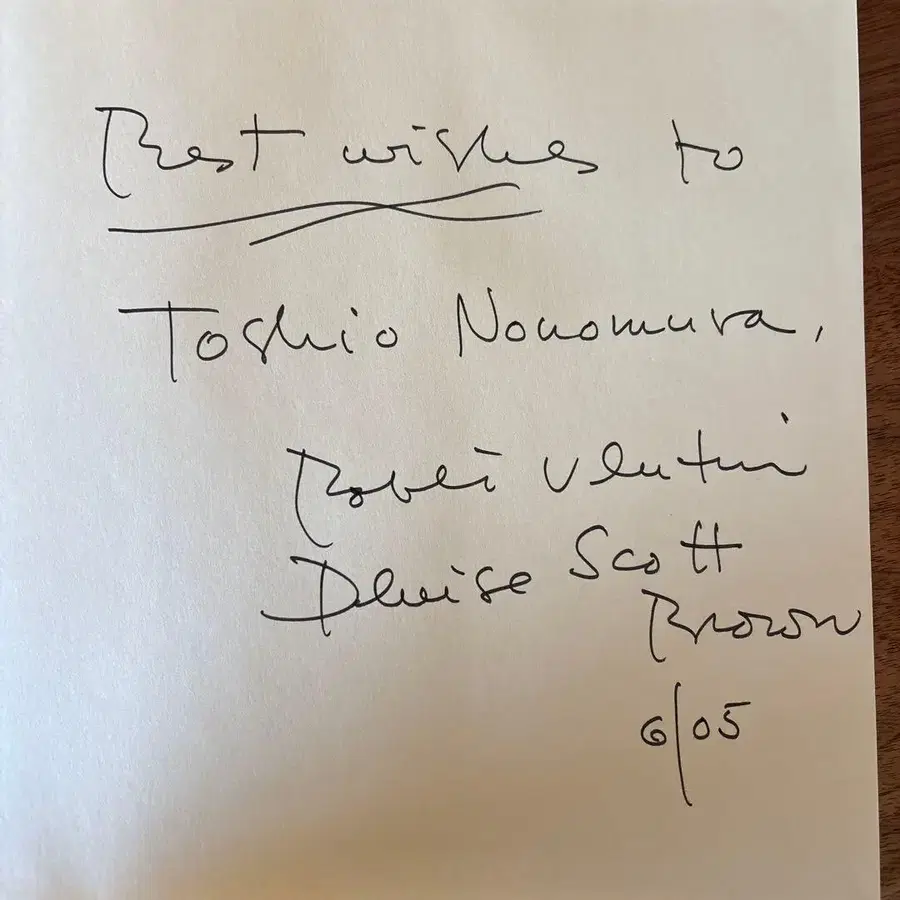 Best wishes to
Toshio Nonomura,
Robert Venturi
Denise Scott
Brown
6/05